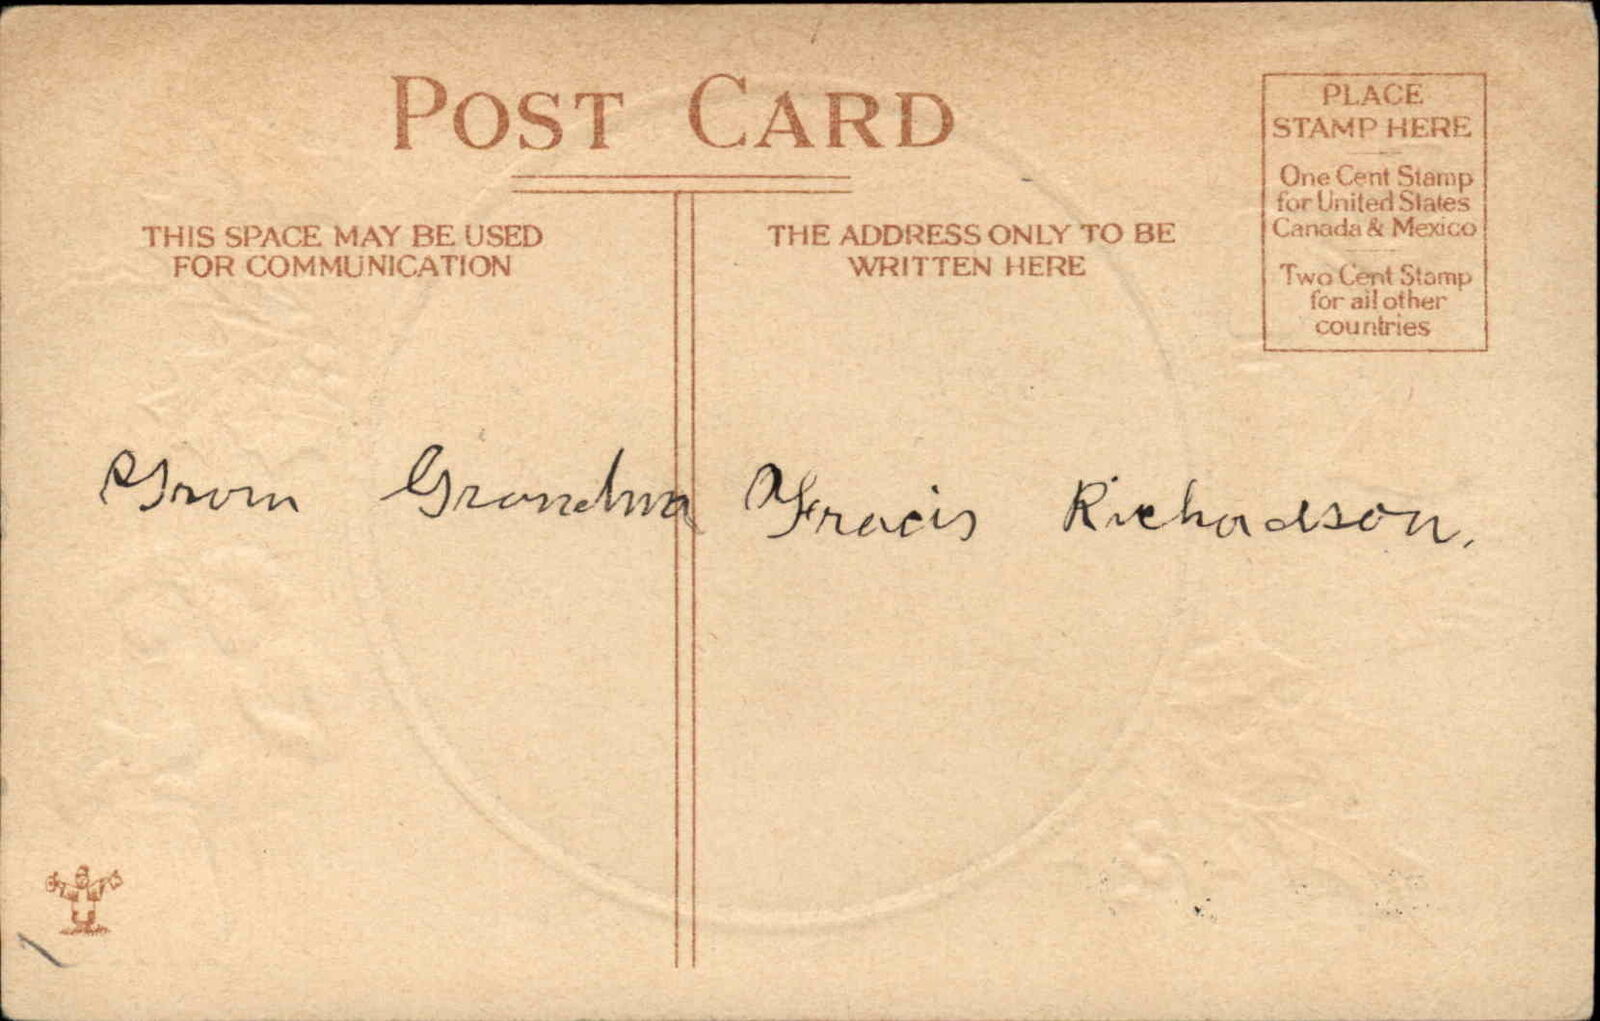 POST CARD
THIS SPACE MAY BE USED
FOR COMMUNICATION
THE ADDRESS ONLY TO BE
WRITTEN HERE
PLACE
STAMP HERE
One Cent Stamp
for United States
Canada & Mexico
Two Cent Stamp
for all other
countries
From Grandma
Fracis Richadson.